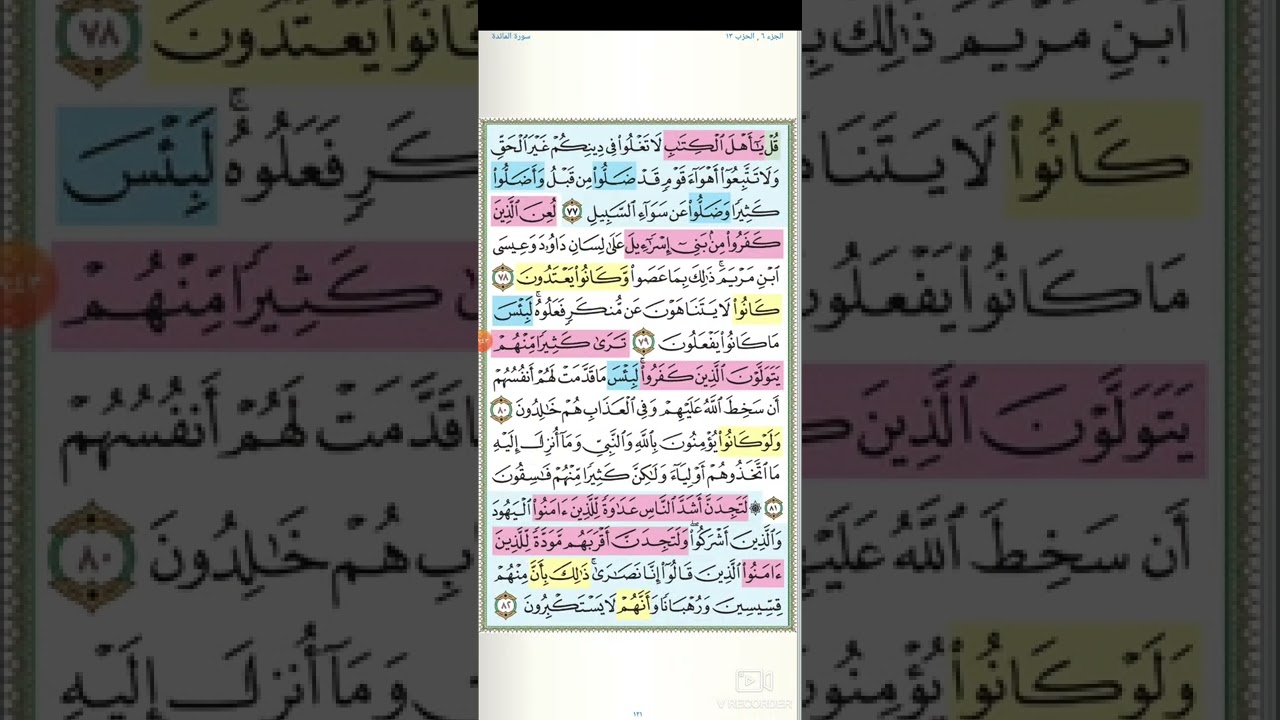 الجزء ٦ , الحزب ١٣
سورة المائدة
قُلْ يَـٰٓأَهْلَ ٱلْكِتَـٰبِ لَا تَغْلُوا۟ فِى دِينِكُمْ غَيْرَ ٱلْحَقِّ
وَلَا تَتَّبِعُوٓا۟ أَهْوَآءَ قَوْمٍ قَدْ ضَلُّوا۟ مِن قَبْلُ وَأَضَلُّوا۟
كَثِيرًا وَضَلُّوا۟ عَن سَوَآءِ ٱلسَّبِيلِ ٧٧ لُعِنَ ٱلَّذِينَ
كَفَرُوا۟ مِنۢ بَنِىٓ إِسْرَٰٓءِيلَ عَلَىٰ لِسَانِ دَاوُۥدَ وَعِيسَى
ٱبْنِ مَرْيَمَ ۚ ذَٰلِكَ بِمَا عَصَوا۟ وَّكَانُوا۟ يَعْتَدُونَ ٧٨
كَانُوا۟ لَا يَتَنَاهَوْنَ عَن مُّنكَرٍ فَعَلُوهُ ۚ لَبِئْسَ
مَا كَانُوا۟ يَفْعَلُونَ ٧٩ تَرَىٰ كَثِيرًا مِّنْهُمْ
يَتَوَلَّوْنَ ٱلَّذِينَ كَفَرُوا۟ ۚ لَبِئْسَ مَا قَدَّمَتْ لَهُمْ أَنفُسُهُمْ
أَن سَخِطَ ٱللَّهُ عَلَيْهِمْ وَفِى ٱلْعَذَابِ هُمْ خَـٰلِدُونَ ٨٠
وَلَوْ كَانُوا۟ يُؤْمِنُونَ بِٱللَّهِ وَٱلنَّبِىِّ وَمَآ أُنزِلَ إِلَيْهِ
مَا ٱتَّخَذُوهُمْ أَوْلِيَآءَ وَلَـٰكِنَّ كَثِيرًا مِّنْهُمْ فَـٰسِقُونَ
٨١ ۞ لَتَجِدَنَّ أَشَدَّ ٱلنَّاسِ عَدَٰوَةً لِّلَّذِينَ ءَامَنُوا۟ ٱلْيَهُودَ
وَٱلَّذِينَ أَشْرَكُوا۟ ۖ وَلَتَجِدَنَّ أَقْرَبَهُم مَّوَدَّةً لِّلَّذِينَ
ءَامَنُوا۟ ٱلَّذِينَ قَالُوٓا۟ إِنَّا نَصَـٰرَىٰ ۚ ذَٰلِكَ بِأَنَّ مِنْهُمْ
قِسِّيسِينَ وَرُهْبَانًا وَأَنَّهُمْ لَا يَسْتَكْبِرُونَ ٨٢
V RECORDER
١٢١